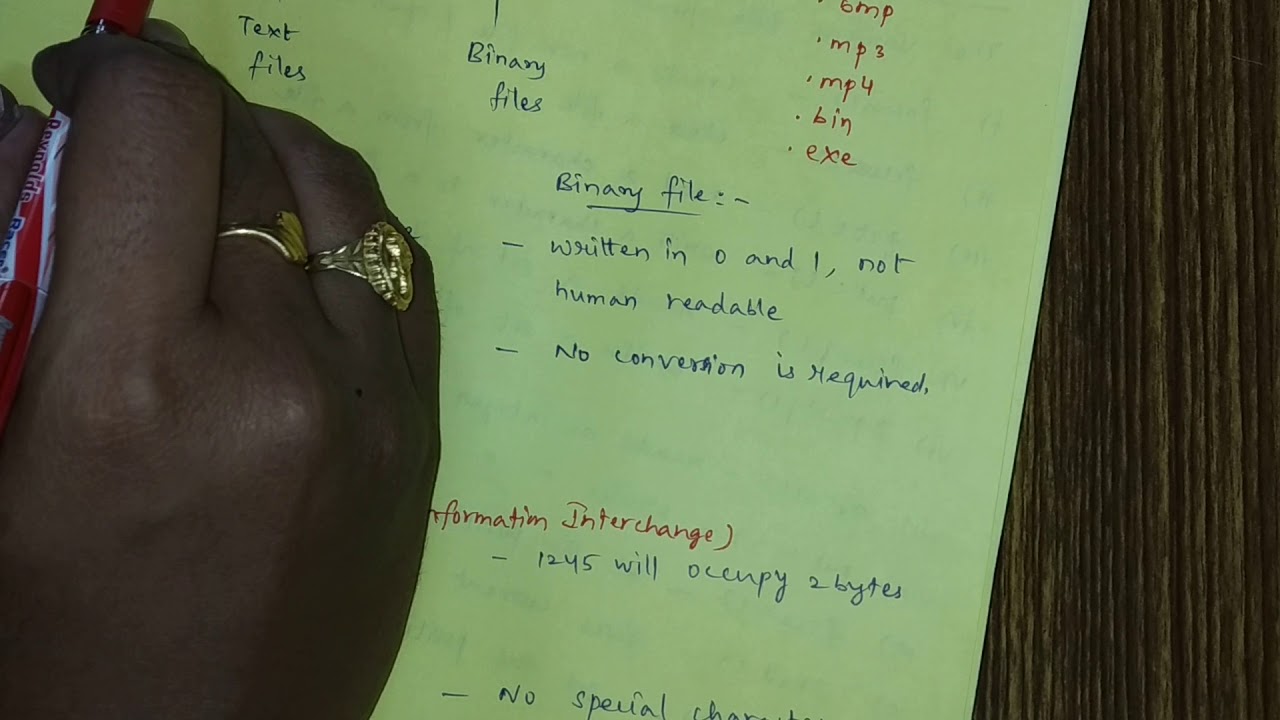 Text
files
Binary
files
. bmp
. mp3
. mp4
. bin
. exe
Binary file:-
- written in 0 and 1, not
human readable
- No conversion is required.
formation Interchange)
- 1245 will occupy 2 bytes
- No special
Reynolds Racer